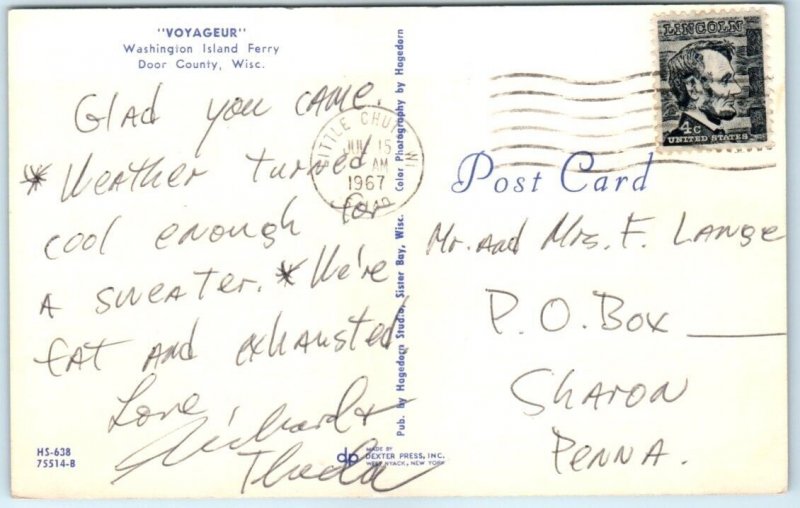 "VOYAGEUR"
Washington Island Ferry
Door County, Wisc.
Glad you came.
*Weather turned
cool enough for
a sweater. *We're
fat and exhausted
Love
Richard &
Theda
HS-638
75514-B
Pub. by Hagedorn Studio, Sister Bay, Wisc. Color Photography by Hagedorn
dp MADE BY
DEXTER PRESS, INC.
WEST NYACK, NEW YORK
LITTLE CHUTE WI
JUL 15
AM
1967
LINCOLN
4c
UNITED STATES
Post Card
Mr. and Mrs. F. Lange
P.O. Box
Sharon
Penna.